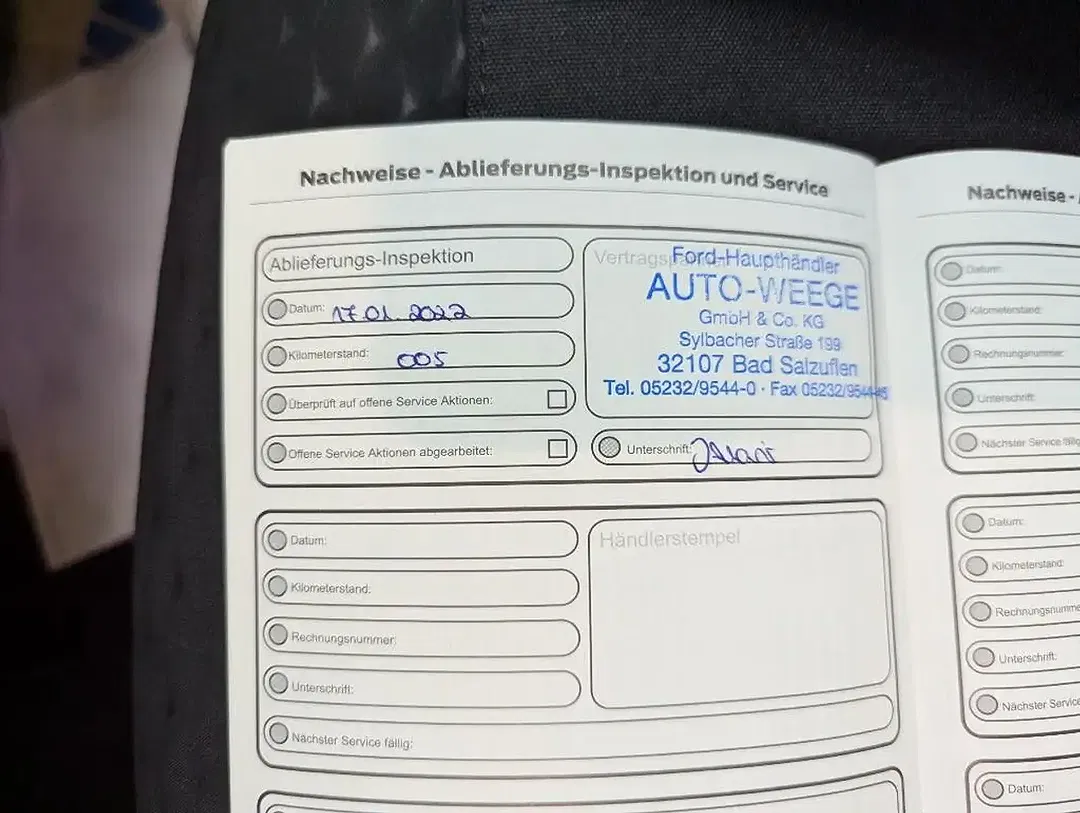 Nachweise - Ablieferungs-Inspektion und Service
Ablieferungs-Inspektion
Datum: 17.01.2022
Kilometerstand: 005
Überprüft auf offene Service Aktionen:
Offene Service Aktionen abgearbeitet:
Ford-Haupthändler
AUTO-WEEGE
GmbH & Co. KG
Sylbacher Straße 199
32107 Bad Salzuflen
Tel. 05232/9544-0 · Fax 05232/9544-45
Unterschrift:
Datum:
Kilometerstand:
Rechnungsnummer:
Unterschrift:
Nächster Service fällig:
Händlerstempel
Nachweise -
Datum:
Kilometerstand:
Rechnungsnummer:
Unterschrift:
Nächster Service fällig
Datum:
Kilometerstand:
Rechnungsnumme
Unterschrift:
Nächster Service
Datum: